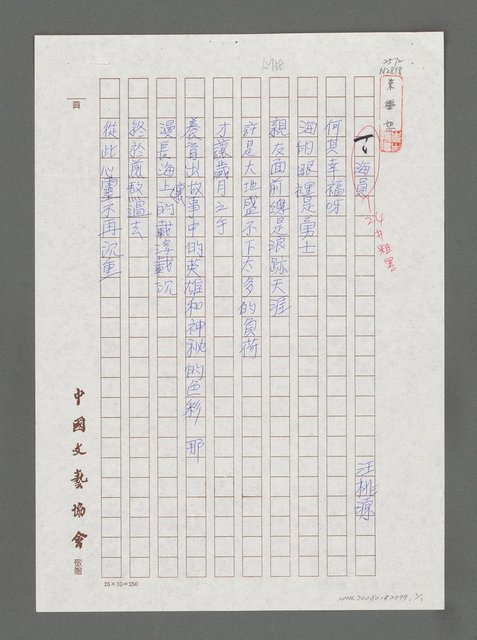 2572
N2898
丁 海員
24#粗黑
汪桃源
何其幸福呀
海的眼裡是勇士
親友面前總是浪跡天涯
許是大地盛不下太多的負荷
才讓歲月之手
養育出故事中的英雄和神秘的色彩 那
漫長海上的載浮載沉
終於煎熬過去
從此心靈不再沉重
頁
中國文藝協會 敬贈
25×10=250